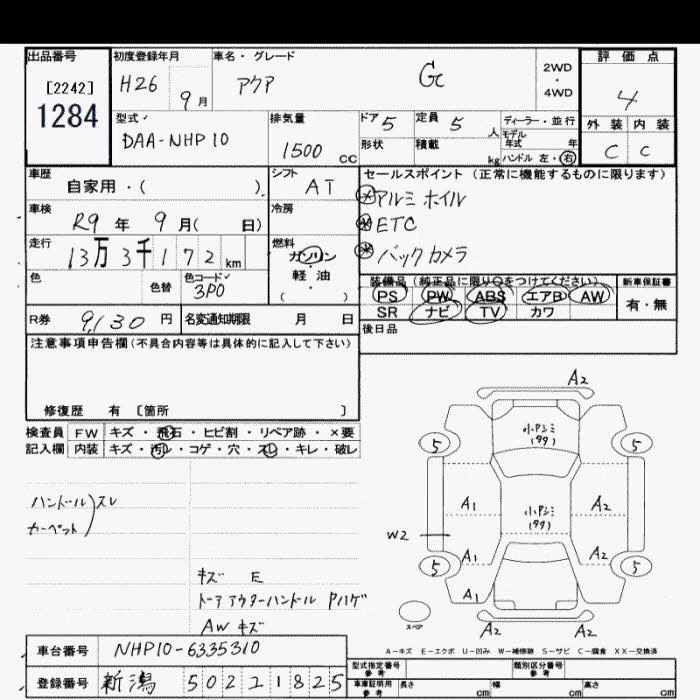 出品番号 初度登録年月 車名・グレード 評価点
[2242] H26 9月 アクア G 2WD・4WD 4
1284
型式 排気量 ドア 5 定員 5人 ディーラー・並行 外装 内装
DAA-NHP10 1500cc 形状 積載 kg モデル年式 年 C C
ハンドル 左・右
車歴 シフト セールスポイント(正常に機能するものに限ります)
自家用・( ) AT アルミホイル
車検 冷房 ETC
R9年 9月( 日)
走行 燃料 バックカメラ
13万3千172km ガソリン・軽油・( )
色 色替 色コード 装備品(純正品に限り○をつけてください) 新車保証書
3P0 PS PW ABS エアB AW 有・無
SR ナビ TV カワ
R券 9,130円 名変通知期限 月 日 後日品
注意事項申告欄(不具合内容等は具体的に記入して下さい)
修復歴 有 [箇所 ]
検査員 FW キズ・飛石・ヒビ割・リペア跡・×要
記入欄 内装 キズ・汚レ・コゲ・穴・スレ・キレ・破レ
ハンドル スレ
カーペット
キズ E
アウターハンドル Pハゲ
AW キズ
A2
小アシミ
5 5
A1 A2
小アシミ
W2
A1 A2
5 5
A1
スペア A2 A2
A-キズ E-エクボ U-凹み W-補修跡 S-サビ C-腐食 XX-交換済
車台番号 NHP10-6335310 型式指定番号 参考 類別区分番号 参考
登録番号 新潟 502 り1825 車庫証明用 参考 長さ cm 幅 cm 高さ cm